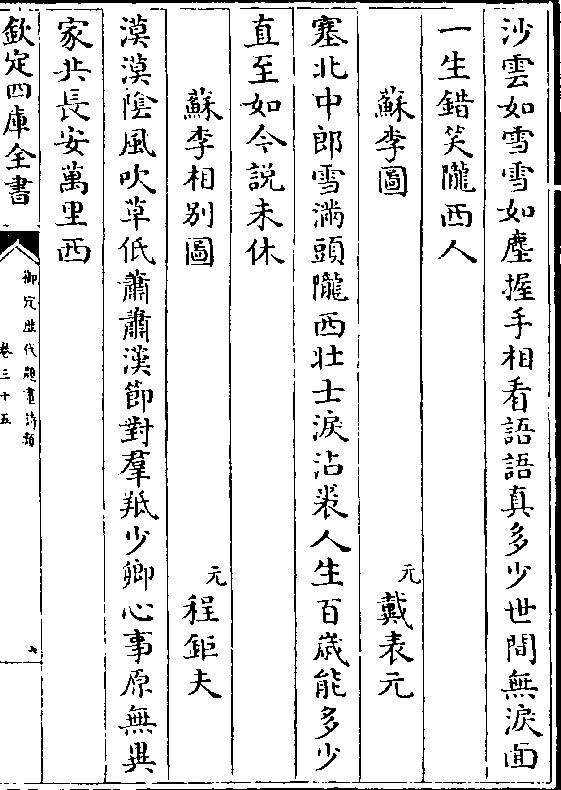 沙雲如雪雪如塵握手相看語語真多少世間無淚面
一生錯笑隴西人
蘇李圖 元 戴表元
塞北中郎雪滿頭隴西壯士淚沾裘人生百歲能多少
直至如今説未休
蘇李相别圖 元 程鉅夫
漠漠陰風吹草低蕭蕭漢節對羣羝少卿心事原無異
家共長安萬里西
欽定四庫全書
御定歴代題畫詩類
卷三十五
七